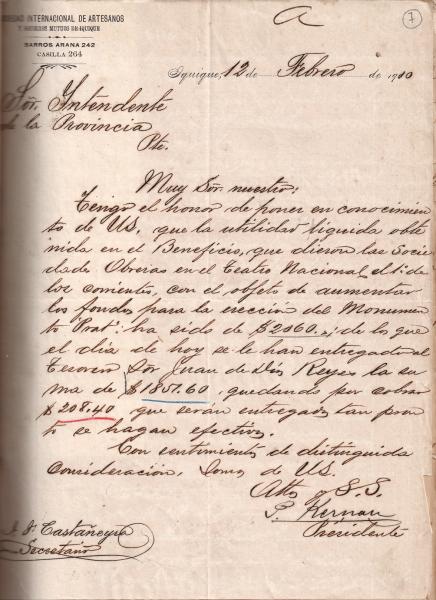 SOCIEDAD INTERNACIONAL DE ARTESANOS
Y SOCORROS MUTUOS DE IQUIQUE
BARROS ARANA 242
CASILLA 264
7
Iquique, 12 de Febrero de 1910
Sõr. Intendente
de la Provincia
Pte.
Muy Sõr. nuestro:
Tengo el honor de poner en conocimien
to de US. que la utilidad líquida obte
nida en el Beneficio, que dieron las Socie
dades Obreras en el Teatro Nacional el 1º de
los corrientes, con el objeto de aumentar
los fondos para la erección del Monumen
to "Prat", ha sido de $2060.-, de los que
el día de hoy se le han entregado al
tesorero Sor Juan de Dios Reyes la su
ma de $1851.60, quedando por cobrar
$208.40 que serán entregados tan pron
to se hagan efectivos.
Con sentimientos de distinguida
Consideración, somos de US.
Atto y S.S.
P. Kernan
Presidente
Castañeyra
Secretario